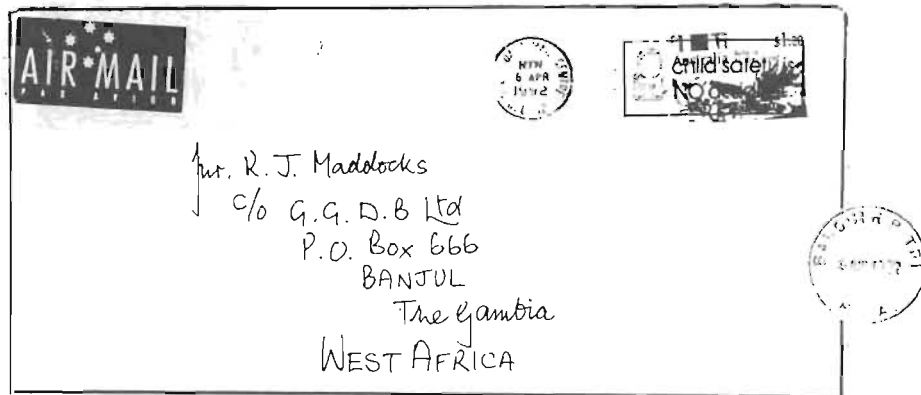 AIR MAIL
PAR AVION
6 APR
1992
$1.20
child safety
No
Mr. R. J. Maddocks
c/o G.G.D.B Ltd
P.O. Box 666
BANJUL
The Gambia
WEST AFRICA